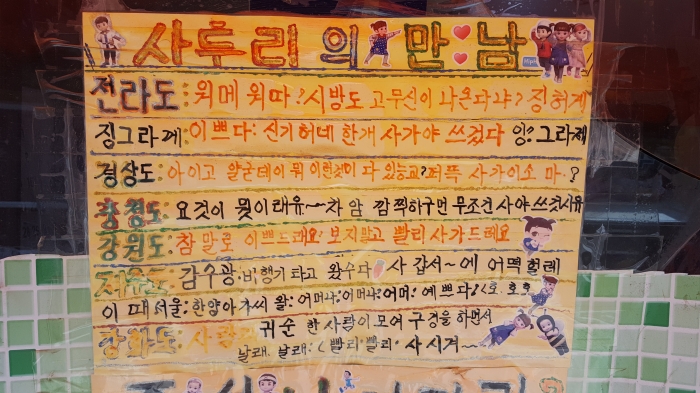 사투리의 만남
전라도: 워메 워따? 시방도 고무신이 나온다냐? 징허게
징그라께 이쁘다: 신기허네 한개 사가야 쓰겄다 잉? 그라제
경상도: 아이고 알궂데이 뭐 이런것이 다 있능교? 저쪽 사가이소 마.?
충청도: 요것이 뭣이래유~~ 차암 깜찍하구먼 무조건 사야쓰겄시유
강원도: 참말로 이쁘드래요 보지말고 빨리 사가드래요
감수광 비행기 타고 왔수다 사갑서~ 에 어멱 헐레
이때 서울: 한양아가씨 왈: 어머나! 어머나! 어머! 예쁘다! 호호호
강화도: 사람 귀순 한사람이 모여 구경을 하면서
날쾌. 날쾌: (빨리빨리. 사시겨~~